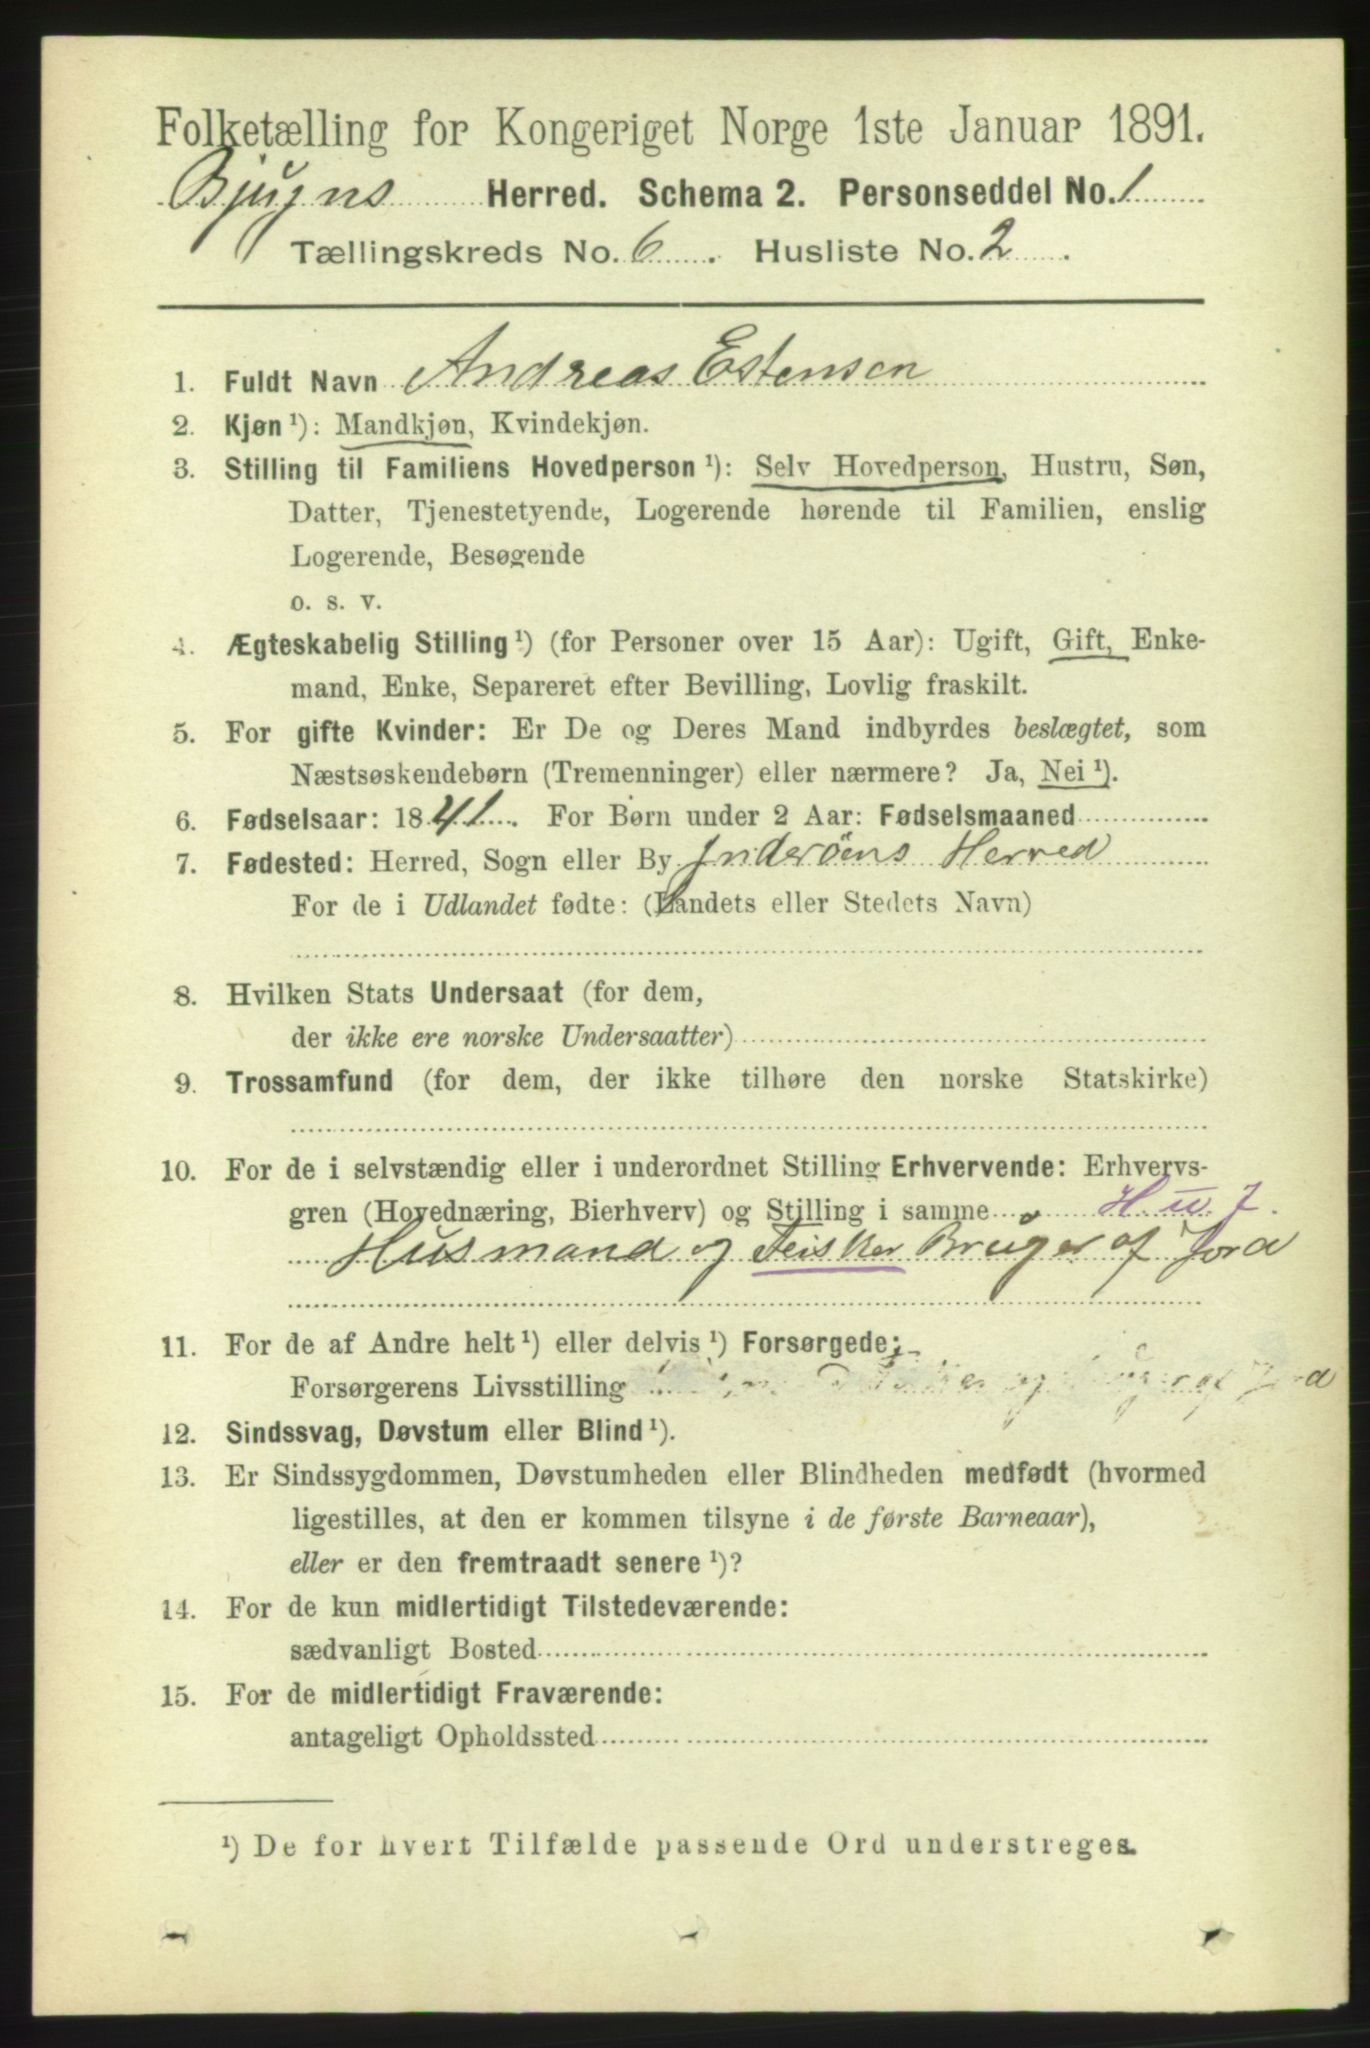 Folketælling for Kongeriget Norge 1ste Januar 1891.
Bjugns Herred. Schema 2. Personseddel No. 1
Tællingskreds No. 6. Husliste No. 2.
1. Fuldt Navn Andreas Estensen
2. Kjøn ¹): Mandkjøn, Kvindekjøn.
3. Stilling til Familiens Hovedperson ¹): Selv Hovedperson, Hustru, Søn,
Datter, Tjenestetyende, Logerende hørende til Familien, enslig
Logerende, Besøgende
o. s. v.
4. Ægteskabelig Stilling ¹) (for Personer over 15 Aar): Ugift, Gift, Enke-
mand, Enke, Separeret efter Bevilling, Lovlig fraskilt.
5. For gifte Kvinder: Er De og Deres Mand indbyrdes beslægtet, som
Næstsøskendebørn (Tremenninger) eller nærmere? Ja, Nei ¹).
6. Fødselsaar: 1841. For Børn under 2 Aar: Fødselsmaaned
7. Fødested: Herred, Sogn eller By Inderöens Herred
For de i Udlandet fødte: (Landets eller Stedets Navn)
8. Hvilken Stats Undersaat (for dem,
der ikke ere norske Undersaatter)
9. Trossamfund (for dem, der ikke tilhøre den norske Statskirke)
10. For de i selvstændig eller i underordnet Stilling Erhvervende: Erhvervs-
gren (Hovednæring, Bierhverv) og Stilling i samme H. u. J.
Husmand og Feisker Bruger af Jord
11. For de af Andre helt ¹) eller delvis ¹) Forsørgede:
Forsørgerens Livsstilling
12. Sindssvag, Døvstum eller Blind ¹).
13. Er Sindssygdommen, Døvstumheden eller Blindheden medfødt (hvormed
ligestilles, at den er kommen tilsyne i de første Barneaar),
eller er den fremtraadt senere ¹)?
14. For de kun midlertidigt Tilstedeværende:
sædvanligt Bosted
15. For de midlertidigt Fraværende:
antageligt Opholdssted
¹) De for hvert Tilfælde passende Ord understreges.